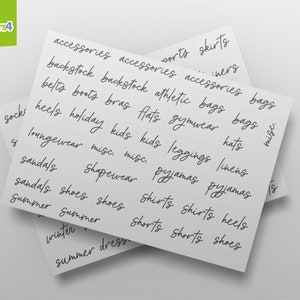 rs4
accessories accessories accessories bags
backstock backstock athletic bags bags
belts boots bras flats gymwear hats misc.
heels holiday kids kids leggings linens
loungewear misc. misc. pyjamas pyjamas
sandals shapewear shirts shirts heels
sandals shoes shoes shorts shorts shoes
summer summer
sports skirts
winter
summer dress